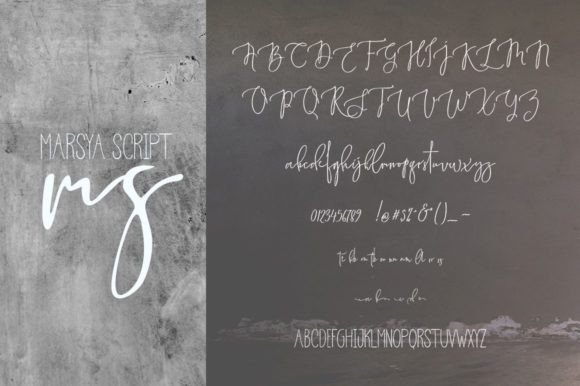 MARSYA SCRIPT
ms
ABCDEFGHIJKLMN
OPQRSTUVWXYZ
abcdefghijklmnopqrstuvwxyz
0123456789 !@#$%^&*()_-~
ABCDEFGHIJKLMNOPQRSTUVWXYZ